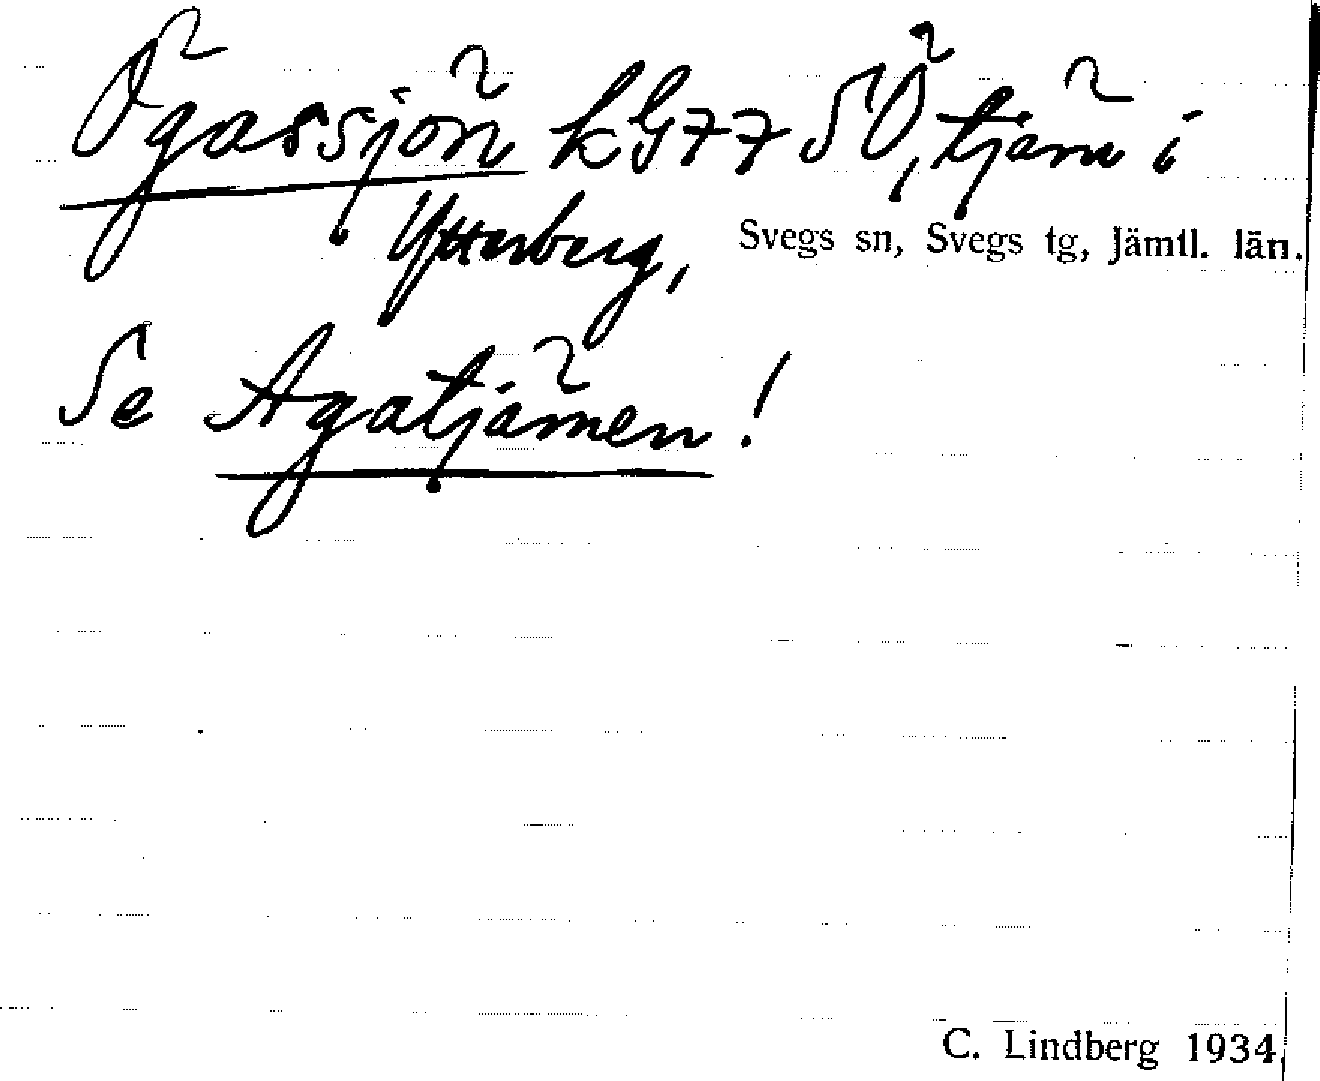 Ögassjön kG77 SÖ, tjärn i
Ytterberg, Svegs sn, Svegs tg, Jämtl. län.
Se Agatjärnen!
C. Lindberg 1934